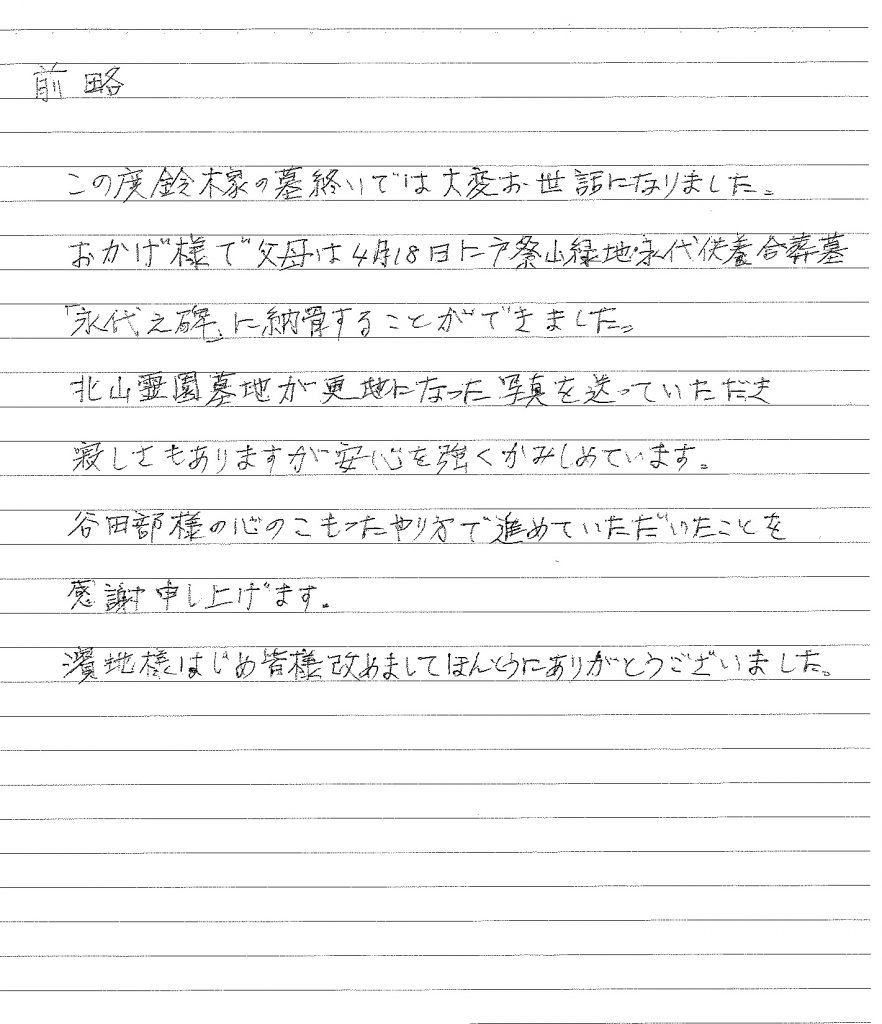 前略
この度鈴木家の墓終いでは大変お世話になりました。
おかげ様で父母は4月18日に戸祭山緑地・永代供養合葬墓
「永代之碑」に納骨することができました。
北山霊園墓地が更地になった写真を送っていただき
寂しさもありますが安心を強くかみしめています。
谷田部様の心のこもったやり方で進めていただいたことを
感謝申し上げます。
濱地様はじめ皆様改めましてほんとうにありがとうございました。